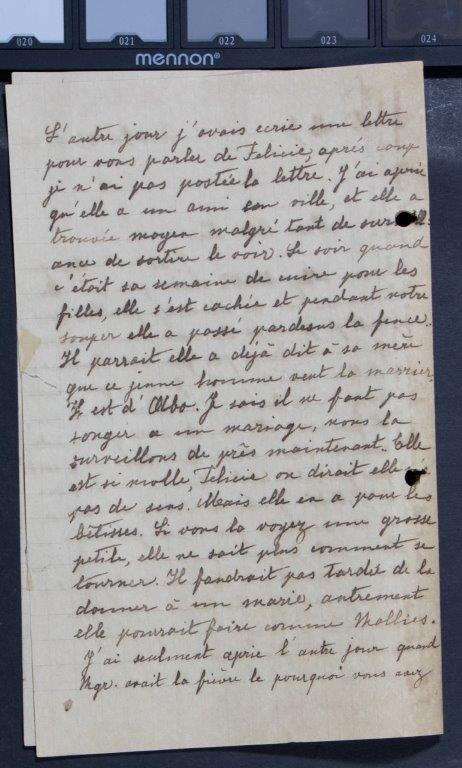 020 021 022 023 024
mennon®
L'autre jour j'avais ecrie une lettre
pour vous parler de Felicie aprés coup
je n'ai pas postée la lettre. J'ai aprie
qu'elle a un ami en ville, et elle a
trouvée moyen malgré tant de
ance de sortire le voir. Le soir quand
c'était sa semaine de cuire pour les
filles, elle s'est cachée et pendant notre
souper elle a passé pardesus la fence.
Il parrait elle a déjà dit à sa mère
que ce jeune homme veut la marrier.
Il est d'Albo. Je sais il ne faut pas
songer a un mariage, nous la
surveillons de près maintenant. Elle
est si molle, Felicie on dirait elle
pas de sens. Mais elle en a pour les
bêtisses. Si vous la voyez une grosse
petite, elle ne sait plus comment se
tourner. Il faudrait pas tardée de la
donner à un marie, autrement
elle pourrait faire comme Mollies.
J'ai seulment aprie l'autre jour quand
Mgr. avait la fièvre le pourquoi vous avez